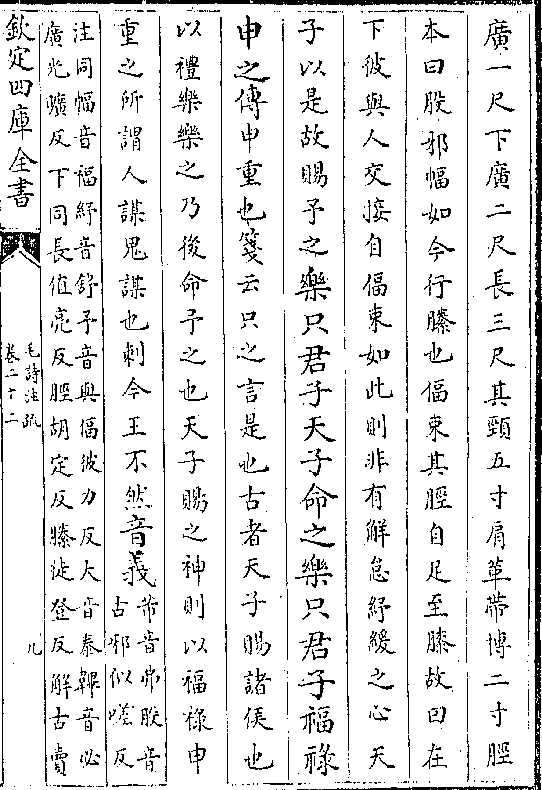 廣一尺下廣二尺長三尺其頸五寸肩革帶博二寸脛
本曰股邪幅如今行縢也偪束其脛自足至膝故曰在
下彼與人交接自偪束如此則非有解怠紓緩之心天
子以是故賜予之樂只君子天子命之樂只君子福祿
申之傳申重也箋云只之言是也古者天子賜諸侯也
以禮樂樂之乃後命予之也天子賜之神則以福祿申
重之所謂人謀鬼謀也刺今王不然音義芾音弗股音
古邪似嗟反
注同幅音福紓音舒予音與偪彼力反大音泰韠音必
廣光曠反下同長值亮反脛胡定反縢徒登反解古賣
欽定四庫全書
毛詩注疏
卷二十二
九